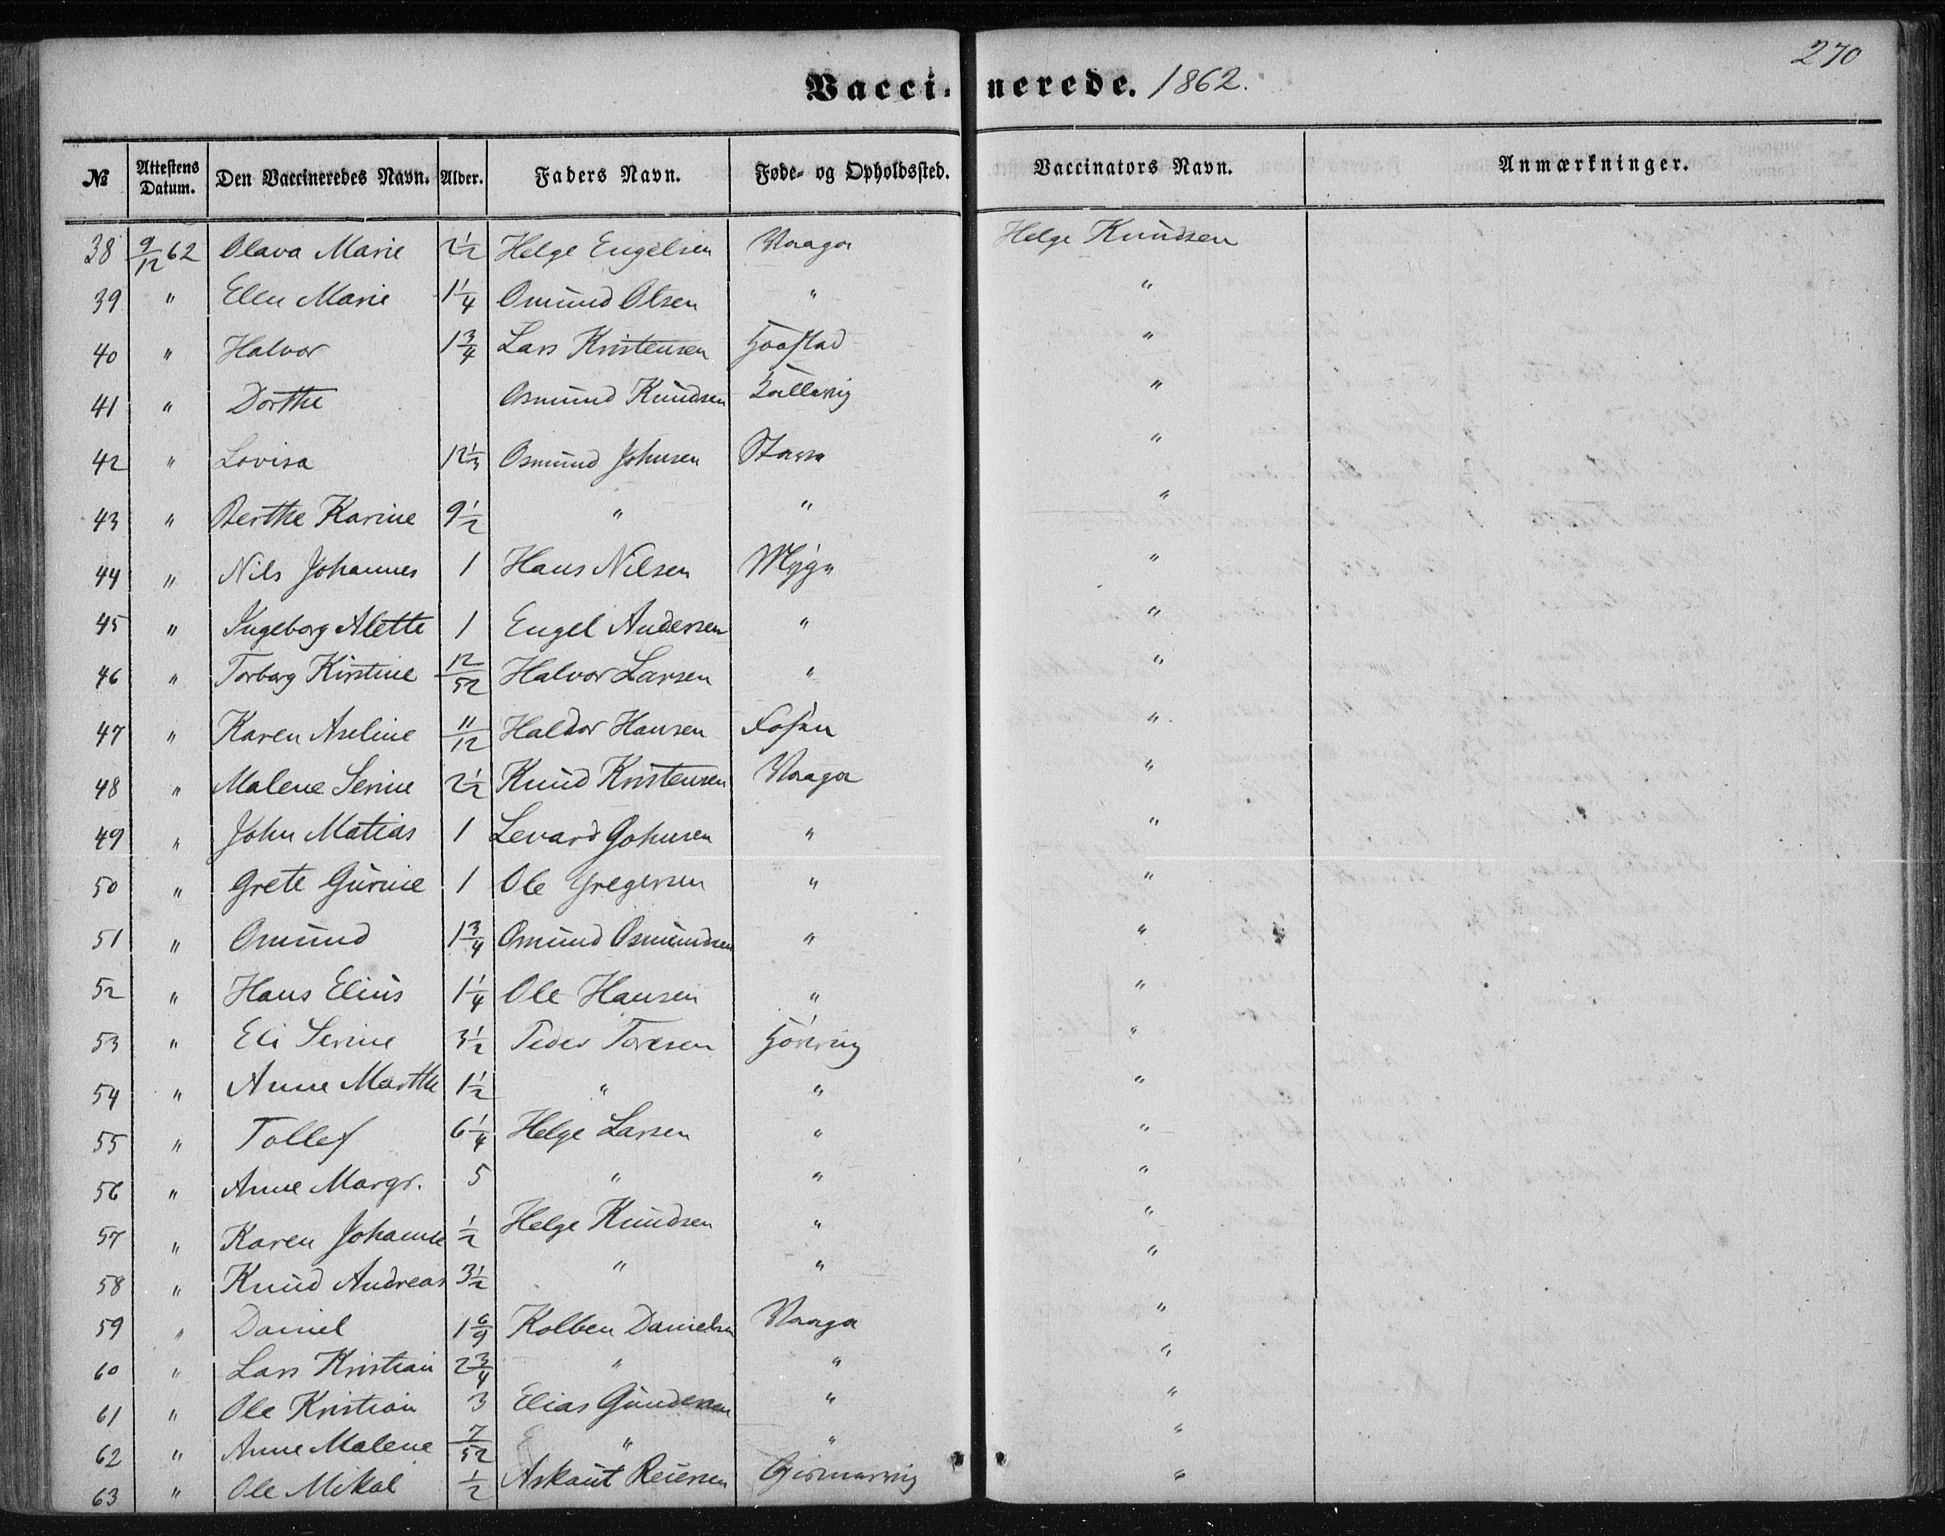 270
Vaccinerede. 1862.
№ Attestens Datum. Den Vaccineredes Navn. Alder. Faders Navn. Føde- og Opholdssted. Vaccinators Navn. Anmærkninger.
38 9/12 62 Olava Marie 2 1/2 Helge Engelsen Vaaga Helge Knudsen
39 " Elen Marie 1 1/4 Omund Olsen " "
40 " Halvor 1 3/4 Lars Kristensen "
41 " Dorthe Osmund Knudsen "
42 " Lovisa 12 1/3 Osmund Johnsen "
43 " Berthe Karine 9 1/2 " " "
44 " Nils Johannes 1 Hans Nilsen "
45 " Ingeborg Alette 1 Engel Andersen " "
46 " Torborg Kirstine 12/52 Halvor Larsen " "
47 " Karen Aseline 11/12 Haldor Hansen Fosen "
48 " Malene Serine 2 1/2 Knud Kristensen Vaaga "
49 " John Matias 1 Levard Johnsen " "
50 " Grete Gurine 1 Ole Gregersen " "
51 " Omund 1 3/4 Osmund Osmundsen " "
52 " Hans Elius 1 1/4 Ole Hansen " "
53 " Eli Serine 3 1/2 Peder Toresen "
54 " Anne Marthe 1 1/2 " " "
55 " Tollef 6 1/4 Helge Larsen " "
56 " Anne Margr. 5 " " "
57 " Karen Johanne 1/2 Helge Knudsen " "
58 " Knud Andreas 3 1/2 " " "
59 " Daniel 1 6/9 Kolben Danielsen Vaaga "
60 " Lars Kristian 2 3/4 " " "
61 " Ole Kristian 3 Elias Gundersen " "
62 " Anne Malene 7/52 " " "
63 " Ole Mikal 1/2 Askaut Reiersen "